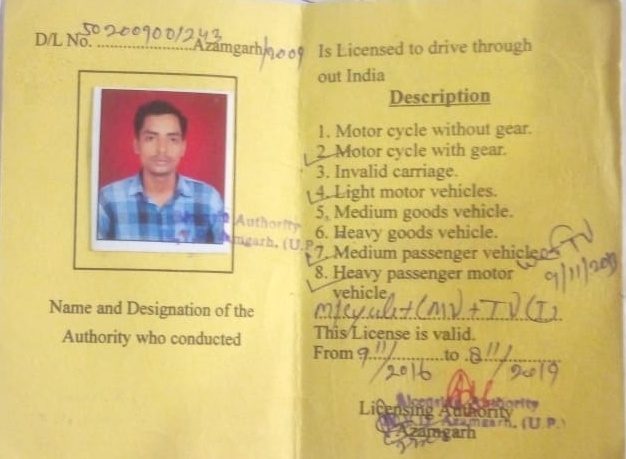 D/L No. 502009001243 Azamgarh/2009
Licensing Authority
Azamgarh. (U.P.
Name and Designation of the
Authority who conducted
Is Licensed to drive through
out India
Description
1. Motor cycle without gear.
2. Motor cycle with gear.
3. Invalid carriage.
4. Light motor vehicles.
5. Medium goods vehicle.
6. Heavy goods vehicle.
7. Medium passenger vehicle
8. Heavy passenger motor
vehicle
M/cycle+LMV+TV(T)
This License is valid.
From 9/11/2016 to 8/11/2019
Licensing Authority
Azamgarh. (U.P.)
Licensing Authority
Azamgarh